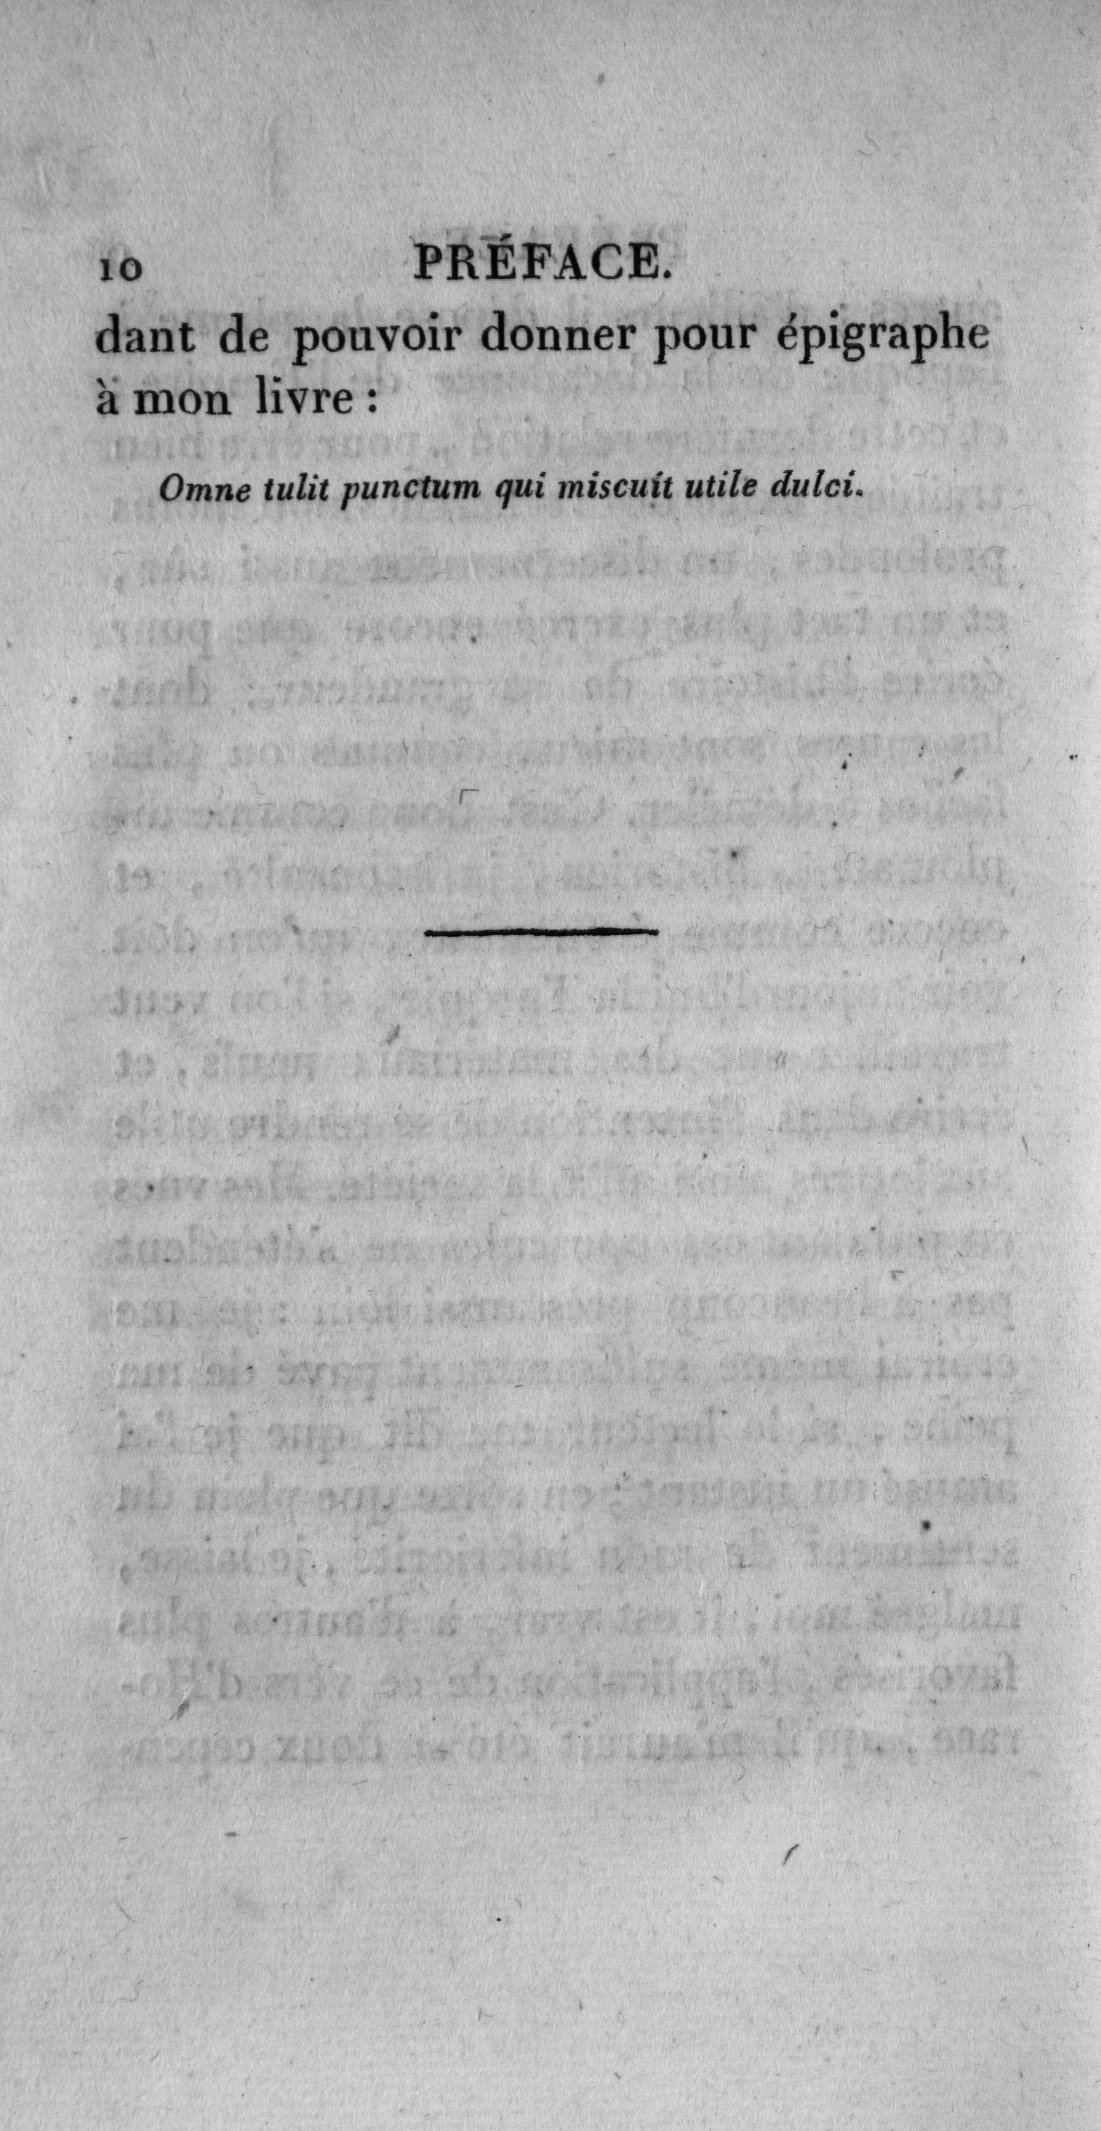 10 PRÉFACE.
dant de pouvoir donner pour épigraphe
à mon livre :
Omne tulit punctum qui miscuit utile dulci.